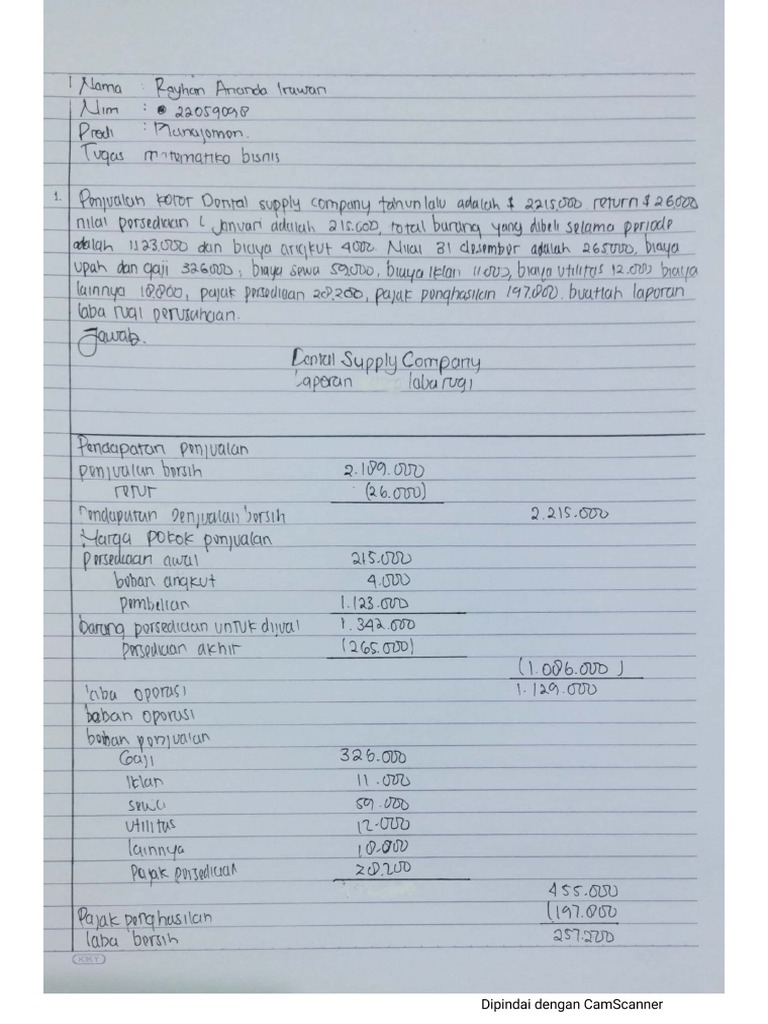 Nama : Rayhan Ananda Irawan
Nim : 22059098
Prodi : Manajemen.
Tugas matematika bisnis
1. Penjualan kotor Dental supply company tahun lalu adalah $ 2215.000 return $ 26.000
nilai persediaan 1 Januari adalah 215.000, total barang yang dibeli selama periode
adalah 1123.000 dan biaya angkut 4000. Nilai 31 desember adalah 265000, biaya
upah dan gaji 326000, biaya sewa 59.000, biaya iklan 11.000, biaya utilitas 12.000 biaya
lainnya 18.800, pajak persediaan 28.200, pajak penghasilan 197.800. buatlah laporan
laba rugi perusahaan.
Jawab.
Dental Supply Company
Laporan laba rugi
Pendapatan penjualan
penjualan bersih 2.189.000
retur (26.000)
Pendapatan penjualan bersih 2.215.000
Harga pokok penjualan
persediaan awal 215.000
beban angkut 4.000
pembelian 1.123.000
barang persediaan untuk dijual 1.342.000
persediaan akhir (265.000)
(1.086.000)
laba operasi 1.129.000
beban operasi
beban penjualan
Gaji 326.000
Iklan 11.000
sewa 59.000
utilitas 12.000
lainnya 18.800
Pajak persediaan 28.200
455.000
Pajak penghasilan (197.800
laba bersih 257.200
KKY
Dipindai dengan CamScanner